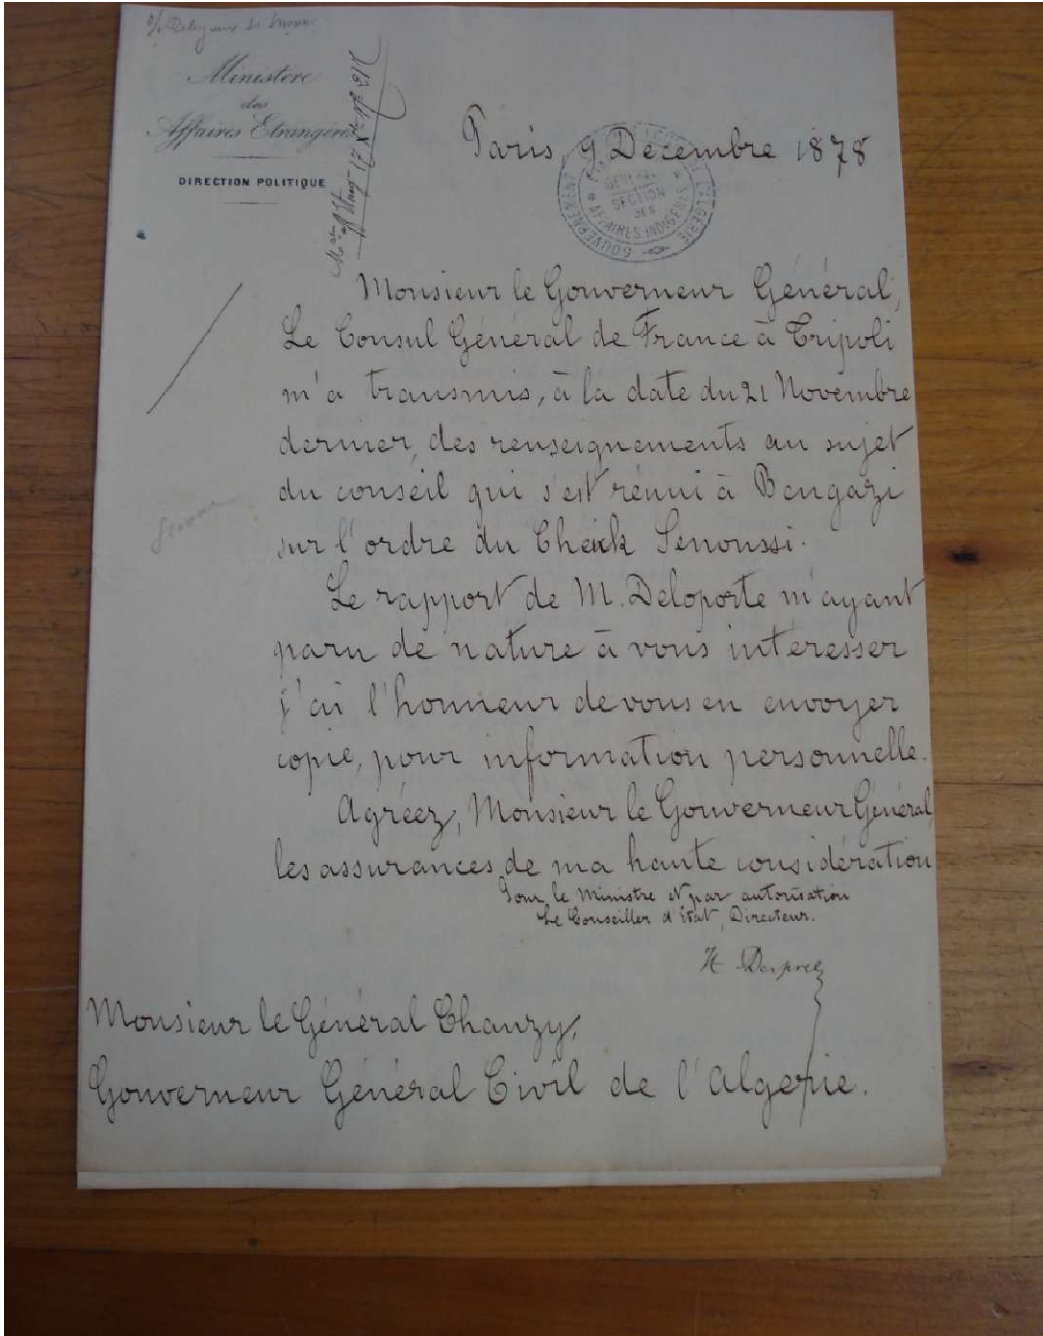 Ministère
des
Affaires Etrangères
DIRECTION POLITIQUE
Paris, 9 Décembre 1878
GOUVERNEMENT GÉNÉRAL DE L'ALGERIE
SECTION
DES
AFFAIRES INDIGÈNES
Monsieur le Gouverneur Général,
Le Consul Général de France à Tripoli
m'a transmis, à la date du 21 Novembre
dernier, des renseignements au sujet
du conseil qui s'est réuni à Bengazi
sur l'ordre du Cheikh Senoussi.
Le rapport de M. Deloporte m'ayant
paru de nature à vous intéresser
j'ai l'honneur de vous en envoyer
copie, pour information personnelle.
Agréez, Monsieur le Gouverneur Général,
les assurances de ma haute considération
Pour le Ministre et par autorisation
Le Conseiller d'Etat, Directeur.
H Desprez
Monsieur le Général Chanzy,
Gouverneur Général Civil de l'Algérie.